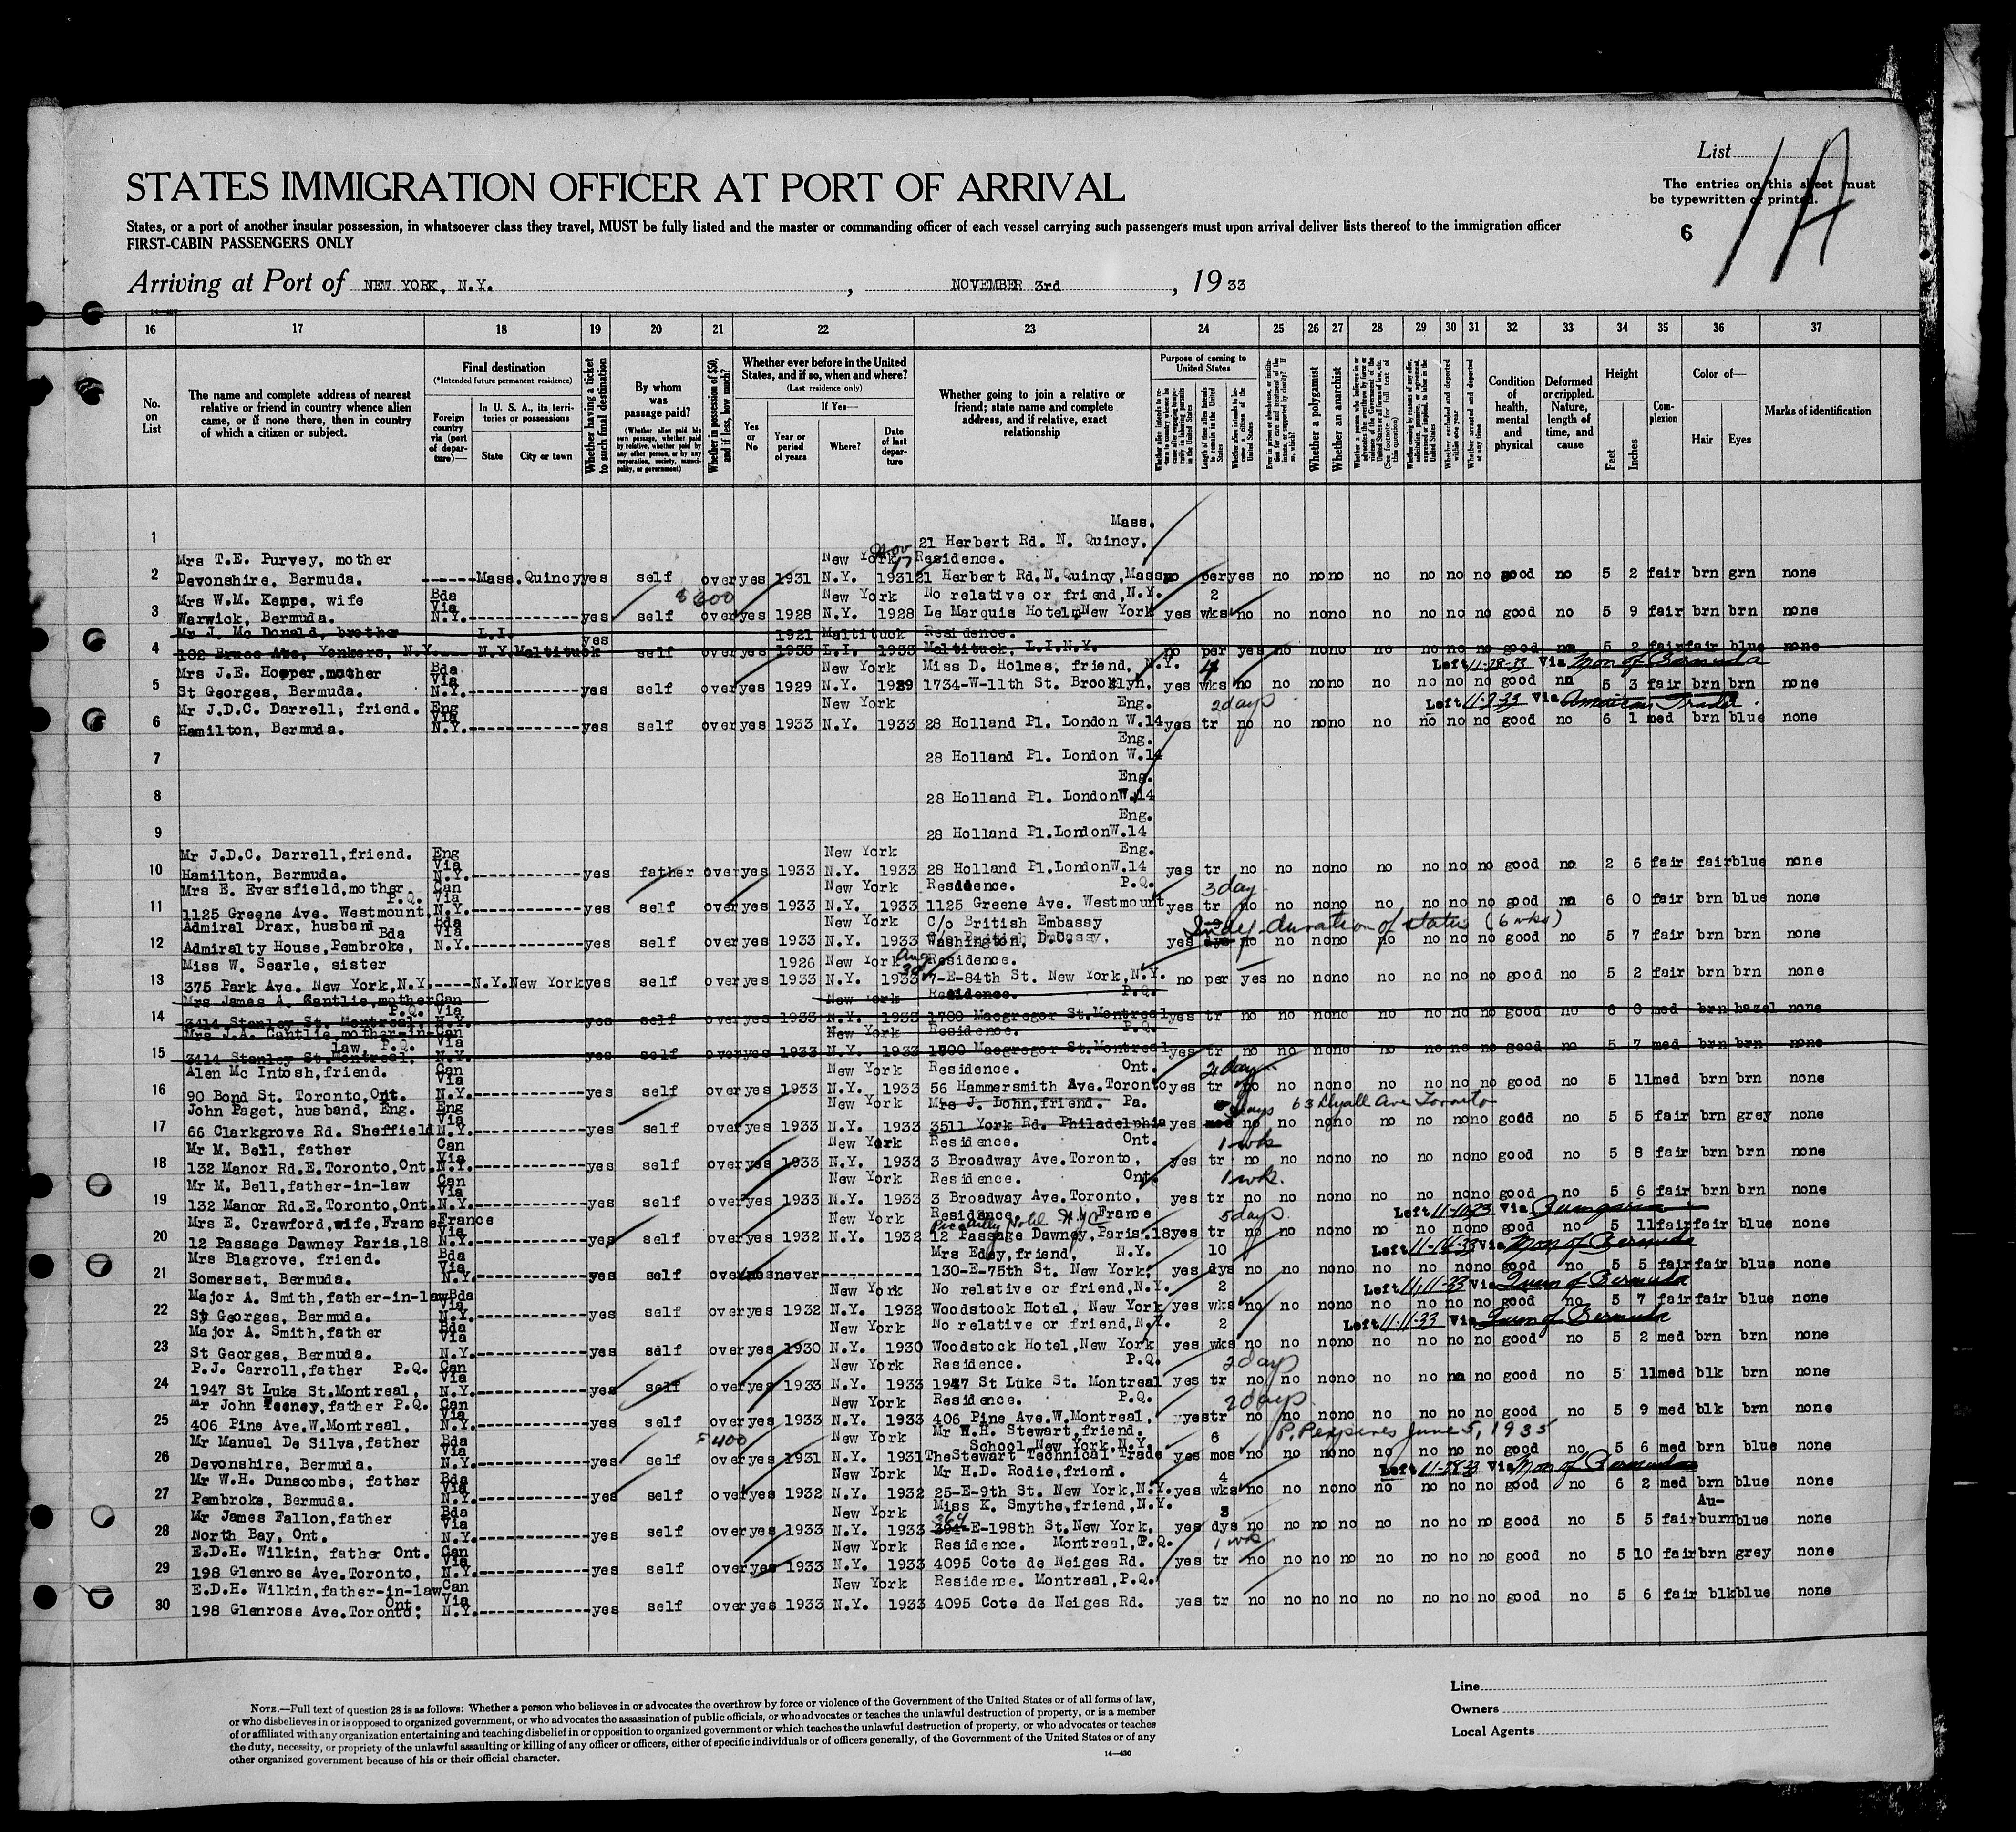 List 1A
STATES IMMIGRATION OFFICER AT PORT OF ARRIVAL
The entries on this sheet must
be typewritten or printed.
States, or a port of another insular possession, in whatsoever class they travel, MUST be fully listed and the master or commanding officer of each vessel carrying such passengers must upon arrival deliver lists thereof to the immigration officer
FIRST-CABIN PASSENGERS ONLY
6
Arriving at Port of NEW YORK, N.Y. , NOVEMBER 3rd , 1933
16 17 18 19 20 21 22 23 24 25 26 27 28 29 30 31 32 33 34 35 36 37
No. on List
The name and complete address of nearest relative or friend in country whence alien came, or if none there, then in country of which a citizen or subject.
Final destination
(*Intended future permanent residence)
Foreign country via (port of departure)—
In U. S. A., its territories or possessions
State
City or town
Whether having a ticket to such final destination
By whom was passage paid?
(Whether alien paid his own passage, whether paid by relative, whether paid by any other person, or by any corporation, society, municipality, or government)
Whether in possession of $50, and if less, how much?
Whether ever before in the United States, and if so, when and where?
(Last residence only)
Yes or No
If Yes—
Year or period of years
Where?
Date of last departure
Whether going to join a relative or friend; state name and complete address, and if relative, exact relationship
Purpose of coming to United States
Length of time alien intends to remain in the United States
Whether alien intends to become a citizen of the United States
Whether a polygamist
Whether an anarchist
Condition of health, mental and physical
Deformed or crippled. Nature, length of time, and cause
Height
Feet
Inches
Complexion
Color of—
Hair
Eyes
Marks of identification
1 Mass.
21 Herbert Rd. N. Quincy,
Mrs T.E. Purvey, mother New York Nov 17 Residence.
2 Devonshire, Bermuda. ------ Mass. Quincy yes self over yes 1931 N.Y. 1931 21 Herbert Rd.N.Quincy,Mass. no per yes no no no no no no no good no 5 2 fair brn grn none
Mrs W.M. Kempe, wife Bda Via $600 New York No relative or friend,N.Y. 2
3 Warwick, Bermuda. N.Y. ------------ yes self over yes 1928 N.Y. 1928 Le Marquis Hotel,New York yes wks no no no no no no no no good no 5 9 fair brn brn none
Mr J. Mc Donald, brother L.I. yes 1921 Maltituck Residence.
4 102 Bruce Ave, Yonkers, N.Y. ---- N.Y. Maltituck self over yes 1933 L.I. 1933 Maltituck, L.I.N.Y. no per yes no no no no no no no good no 5 2 fair fair blue none
Mrs J.E. Hooper,mother Bda Via New York Miss D. Holmes, friend, N.Y. Left 11-28-33 Via Mon of Bermuda
5 St Georges, Bermuda. N.Y. ------------ yes self over yes 1929 N.Y. 1929 1734-W-11th St. Brooklyn, yes wks no no no no no no no no good no 5 3 fair brn brn none
Mr J.D.C. Darrell, friend. Eng Via New York Eng. 2 days Left Via American Trader
6 Hamilton, Bermuda. N.Y. ------------ yes self over yes 1933 N.Y. 1933 28 Holland Pl. London W.14 yes tr no no no no no no no no good no 6 1 med brn blue none
Eng.
7 28 Holland Pl. London W.14
Eng.
8 28 Holland Pl. London W.14
Eng.
9 28 Holland Pl.London W.14
Mr J.D.C. Darrell,friend. Eng Via New York Eng.
10 Hamilton, Bermuda. N.Y. ------------ yes father over yes 1933 N.Y. 1933 28 Holland Pl.London W.14 yes tr no no no no no no no no good no 2 6 fair fair blue none
Mrs E. Eversfield,mother P.Q. Can Via New York Residence. P.Q. 3 day
11 1125 Greene Ave. Westmount, N.Y. ------------ yes self over yes 1933 N.Y. 1933 1125 Greene Ave. Westmount yes tr no no no no no no no no good no 6 0 fair brn blue none
Admiral Drax, husband Bda Bda Via New York C/o British Embassy duration of status (6 wks)
12 Admiralty House,Pembroke, N.Y. ------------ yes self over yes 1933 N.Y. 1933 Washington, D.C. yes dys no no no no no no no no good no 5 7 fair brn brn none
Miss W. Searle, sister 1926 New York Aug 30 Residence.
13 375 Park Ave. New York,N.Y. ----- N.Y. New York yes self over yes 1933 N.Y. 1933 7-E-84th St. New York,N.Y. no per yes no no no no no no no good no 5 2 fair brn brn none
Mrs James A. Cantlie,mother P.Q. Can Via New York Residence. P.Q.
14 3414 Stanley St. Montreal, N.Y. yes self over yes 1933 N.Y. 1933 1700 Macgregor St.Montreal yes tr no no no no no no no no good no 6 0 med brn hazel none
Mrs J.A. Cantlie,mother-in-law, P.Q. Can Via New York Residence. P.Q.
15 3414 Stanley St.Montreal, N.Y. yes self over yes 1933 N.Y. 1933 1700 Macgregor St.Montreal yes tr no no no no no no no no good no 5 7 med brn brn none
Alen Mc Intosh,friend. Can Via New York Residence. Ont. 2 day
16 90 Bond St. Toronto,Ont. N.Y. ------------ yes self over yes 1933 N.Y. 1933 56 Hammersmith Ave.Toronto yes tr no no no no no no no no good no 5 11 med brn brn none
John Paget, husband, Eng. Eng Via New York Mrs J. Lohn,friend. Pa. days 63 Lyall Ave Toronto
17 66 Clarkgrove Rd. Sheffield N.Y. ------------ yes self over yes 1933 N.Y. 1933 3511 York Rd. Philadelphia yes mos no no no no no no no no good no 5 5 fair brn grey none
Mr M. Bell, father Can Via New York Residence. Ont. 1 wk
18 132 Manor Rd.E.Toronto,Ont. N.Y. ------------ yes self over yes 1933 N.Y. 1933 3 Broadway Ave.Toronto, yes tr no no no no no no no no good no 5 8 fair brn brn none
Mr M. Bell,father-in-law Can Via New York Residence. Ont. 1 wk.
19 132 Manor Rd.E.Toronto,Ont. N.Y. ------------ yes self over yes 1933 N.Y. 1933 3 Broadway Ave.Toronto, yes tr no no no no no no no no good no 5 6 fair brn brn none
Mrs E. Crawford,wife,France France Via New York Residence. France Picadilly Hotel N.Y.C 5 days Left 11-10-33 Via
20 12 Passage Dawney Paris,18 N.Y. ------------ yes self over yes 1932 N.Y. 1932 12 Passage Dawney,Paris.18 yes tr no no no no no no no no good no 5 11 fair fair blue none
Mrs Blagrove, friend. Bda Via Mrs Edey,friend, N.Y. 10 Left 11-14-33 Via Mon of Bermuda
21 Somerset, Bermuda. N.Y. ------------ yes self over never ------------ 130-E-75th St. New York, yes dys no no no no no no no no good no 5 5 fair fair blue none
Major A. Smith,father-in-law Bda Via New York No relative or friend,N.Y. 2 Left 11/11-33 Via Queen of Bermuda
22 St Georges, Bermuda. N.Y. ------------ yes self over yes 1932 N.Y. 1932 Woodstock Hotel, New York yes wks no no no no no no no no good no 5 7 fair fair blue none
Major A. Smith,father Bda Via New York No relative or friend,N.Y. 2 Left 11-11-33 Via Queen of Bermuda
23 St Georges, Bermuda. N.Y. ------------ yes self over yes 1930 N.Y. 1930 Woodstock Hotel,New York yes wks no no no no no no no no good no 5 2 med brn brn none
P.J. Carroll,father P.Q. Can Via New York Residence. P.Q. 2 days
24 1947 St Luke St.Montreal, N.Y. ------------ yes self over yes 1933 N.Y. 1933 1947 St Luke St. Montreal yes tr no no no no no no no no good no 5 11 med blk brn none
Mr John Feeney,father P.Q. Can Via New York Residence. P.Q. 2 days
25 406 Pine Ave.W.Montreal, N.Y. ------------ yes self over yes 1933 N.Y. 1933 406 Pine Ave.W.Montreal, yes tr no no no no no no no no good no 5 9 med blk brn none
Mr Manuel De Silva,father Bda Via $400 New York Mr W.H. Stewart,friend. School,New York,N.Y. 6 P.P. expires June 5, 1935
26 Devonshire, Bermuda. N.Y. ------------ yes self over yes 1931 N.Y. 1931 The Stewart Technical Trade yes mos no no no no no no no no good no 5 6 med brn blue none
Mr W.H. Dunscombe, father Bda Via New York Mr H.D. Rodie,friend. 4 Left 11-28-33 Via Mon of Bermuda
27 Pembroke, Bermuda. N.Y. ------------ yes self over yes 1932 N.Y. 1932 25-E-9th St. New York,N.Y. yes wks no no no no no no no no good no 6 2 med brn blue none
Mr James Fallon,father Bda Via New York Miss K. Smythe,friend,N.Y. 364 3 Au-
28 North Bay, Ont. N.Y. ------------ yes self over yes 1933 N.Y. 1933 E-198th St.New York, yes dys no no no no no no no no good no 5 5 fair burn blue none
E.D.H. Wilkin, father Ont. Can Via New York Residence. Montreal,P.Q. 1 wk
29 198 Glenrose Ave.Toronto, N.Y. ------------ yes self over yes 1933 N.Y. 1933 4095 Cote de Neiges Rd. yes tr no no no no no no no no good no 5 10 fair brn grey none
E.D.H. Wilkin,father-in-law Ont. Can Via New York Residence. Montreal,P.Q.
30 198 Glenrose Ave.Toronto, N.Y. ------------ yes self over yes 1933 N.Y. 1933 4095 Cote de Neiges Rd. yes tr no no no no no no no no good no 5 6 fair blk blue none
NOTE.—Full text of question 28 is as follows: Whether a person who believes in or advocates the overthrow by force or violence of the Government of the United States or of all forms of law,
or who disbelieves in or is opposed to organized government, or who advocates the assassination of public officials, or who advocates or teaches the unlawful destruction of property, or is a member
of or affiliated with any organization entertaining and teaching disbelief in or opposition to organized government or which teaches the unlawful destruction of property, or who advocates or teaches
the duty, necessity, or propriety of the unlawful assaulting or killing of any officer or officers, either of specific individuals or of officers generally, of the Government of the United States or of any
other organized government because of his or their official character.
14—430
Line
Owners
Local Agents